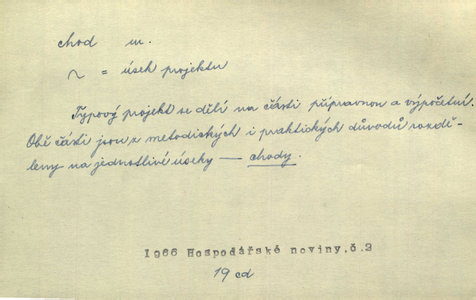 chod m.
~ = úsek projektu
Typový projekt se dělí na části přípravnou a výpočetní.
Obě části jsou z metodických i praktických důvodů rozdě-
leny na jednotlivé úseky — chody.
1966 Hospodářské noviny.č.2
19 cd